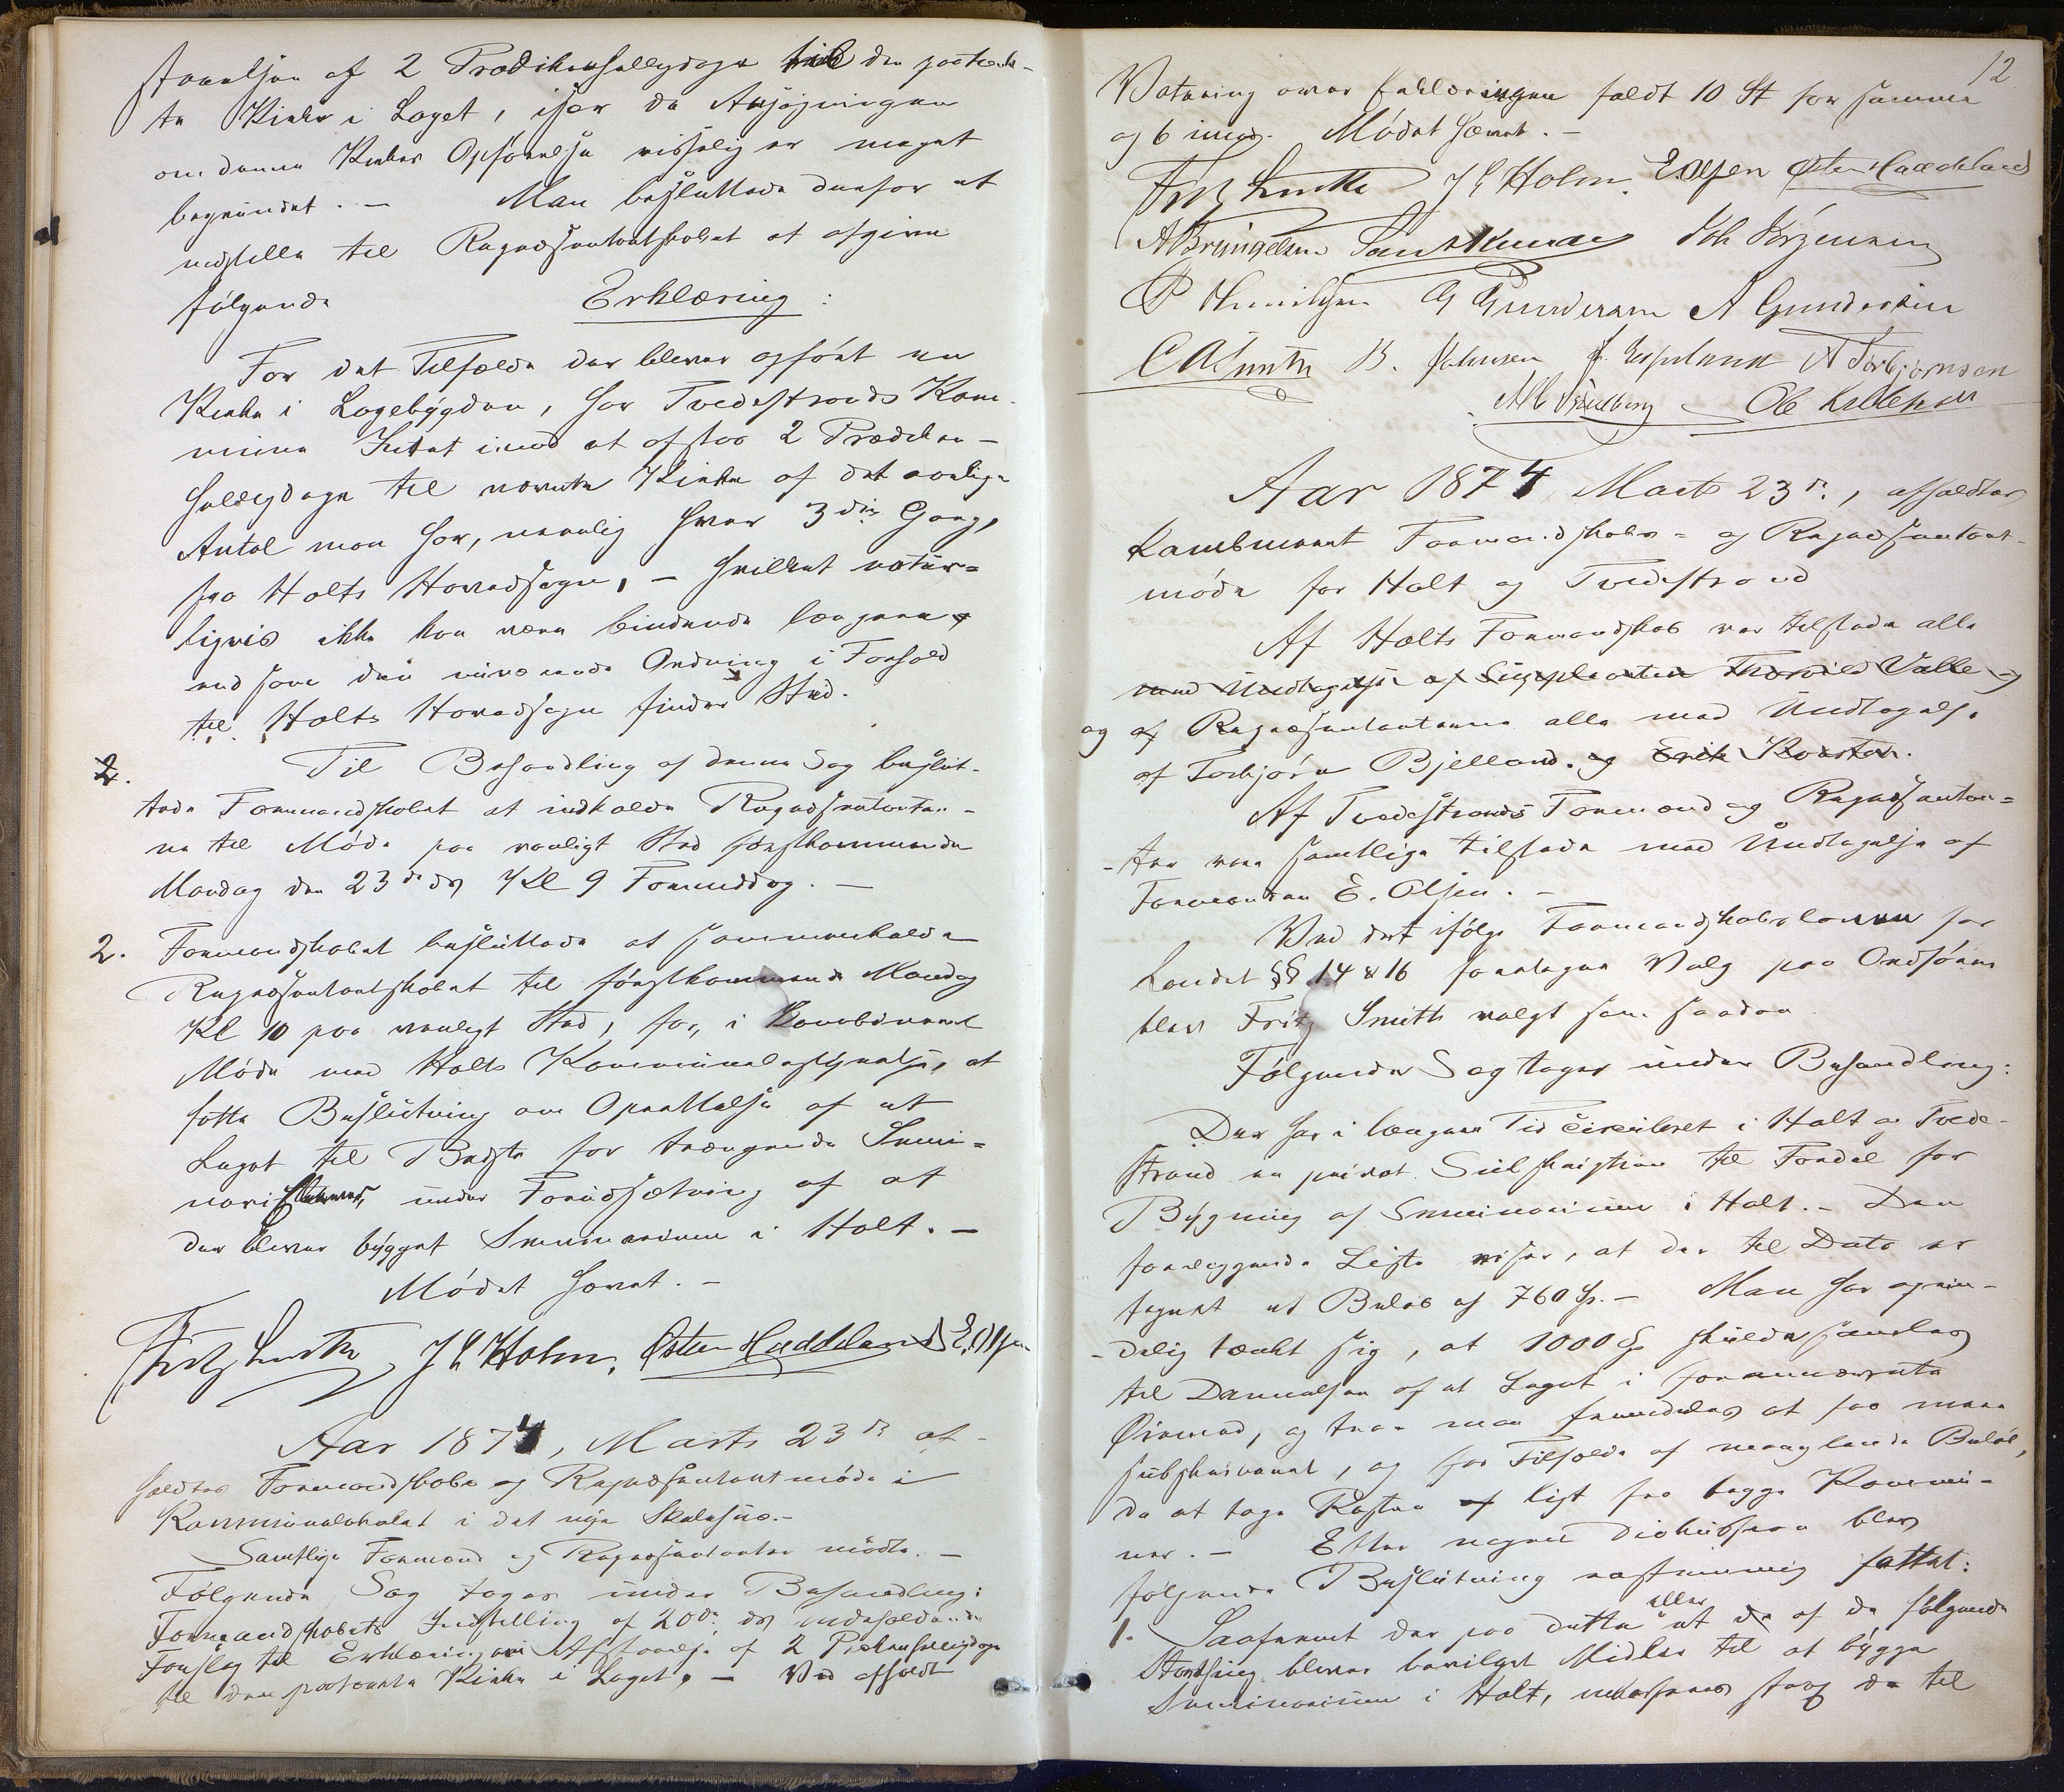 staaelsen af 2 Prædikenhelligdage til den paatænk-
te Kirke i Laget, især da Ansøgningen
om denne Kirkes Opførelse visselig er meget
begrundet. – Man besluttede derfor at
indstille til Repræsentantskabet at afgive
følgende Erklæring:
For det Tilfælde der bliver opført en
Kirke i Lagebygden, har Tvedestrands Kom-
mune Intet imod at afstaa 2 Prædiken-
helligdage til nævnte Kirke af det vanlige
Antal man har, nemlig hver 3die Gang,
fra Holts Hovedsogn, – hvilket natur-
ligvis ikke kan være bindende længere
end som den nuværende Ordning i Forhold
til Holts Hovedsogn finder Sted.
2. Til Behandling af denne Sag beslut-
tede Formandskabet at indkalde Repræsentanter-
ne til Møde paa vanligt Sted førstkommende
Mandag den 23de ds Kl 9 Formiddag. –
2. Formandskabet besluttede at sammenkalde
Repræsentantskabet til førstkommende Mandag
Kl 10 paa vanligt Sted, for, i kombineret
Møde med Holts Kommunebestyrelse, at
fatte Beslutning om Oprettelse af et
Legat til Bedste for trængende Semi-
narister, under Forudsætning af at
der bliver bygget Seminarium i Holt. –
Mødet hævet. –
Fritz Smith J L Holm. Østen Haddeland E. Olsen
Aar 1874, Marts 23de af-
holdtes Formandskabs og Repræsentantmøde i
Kommunelokalet i det nye Skolehus. –
Samtlige Formænd og Repræsentanter mødte. –
Følgende Sag toges under Behandling:
Formandskabets Indstilling af 20de ds indeholdende
Forslag til Erklæring om Afstaaelse af 2 Prækenhelligdage
til den paatænkte Kirke i Laget. – Ved afholdt
12
Votering over Erklæringen faldt 10 St for samme
og 6 imod. Mødet hævet. –
Fritz Smith J L Holm. E. Olsen Østen Haddeland
A Bringelsen Knudsen Joh Jörgensen
P Henriksen G Gundersen A Gundersen
C A Smith B. Johnsen J. Espeland A Torbjørnsen
Ole Kittelsen
Aar 1874, Marts 23de, afholdtes
kombineret Formandskabs- og Repræsentant-
møde for Holt og Tvedestrand
Af Holts Formandskab var tilstede alle
med Undtagelse af Suppleanten Thorvald Valle og
og af Repræsentanterne alle med Undtagelse
af Torbjørn Bjelland. og Erik Kvastad.
Af Tvedestrands Formænd og Repræsentan-
-ter vare samtlige tilstede med Undtagelse af
Formanden E. Olsen. –
Ved det ifølge Formandskabsloven for
Landet §§ 14 & 16 foretagne Valg paa Ordfører
blev Fritz Smith valgt som saadan
Følgende Sag toges under Behandling:
Der har i længere Tid circuleret i Holt og Tvede-
strand en privat Subskription til Fordel for
Bygning af Seminarium i Holt. – Den
foreliggende Liste viser, at der til Dato er
tegnet et Beløb af 760 Sp. – Man har oprin-
-delig tænkt sig, at 1000 Sp skulde samles
til Dannelsen af et Legat i forannævnte
Øiemed, og tror man fremdeles at faa mere
subskriberet, og for Tilfælde af manglende Beløb,
da at tage Resten af ligt fra begge Kommu-
ner. – Efter nogen Diskussion blev
følgende Beslutning eenstemmig fattet:
1. Saafremt der paa dette eller et af de følgende
Storthing bliver bevilget Midler til at bygge
Seminarium i Holt, udredes strax de til